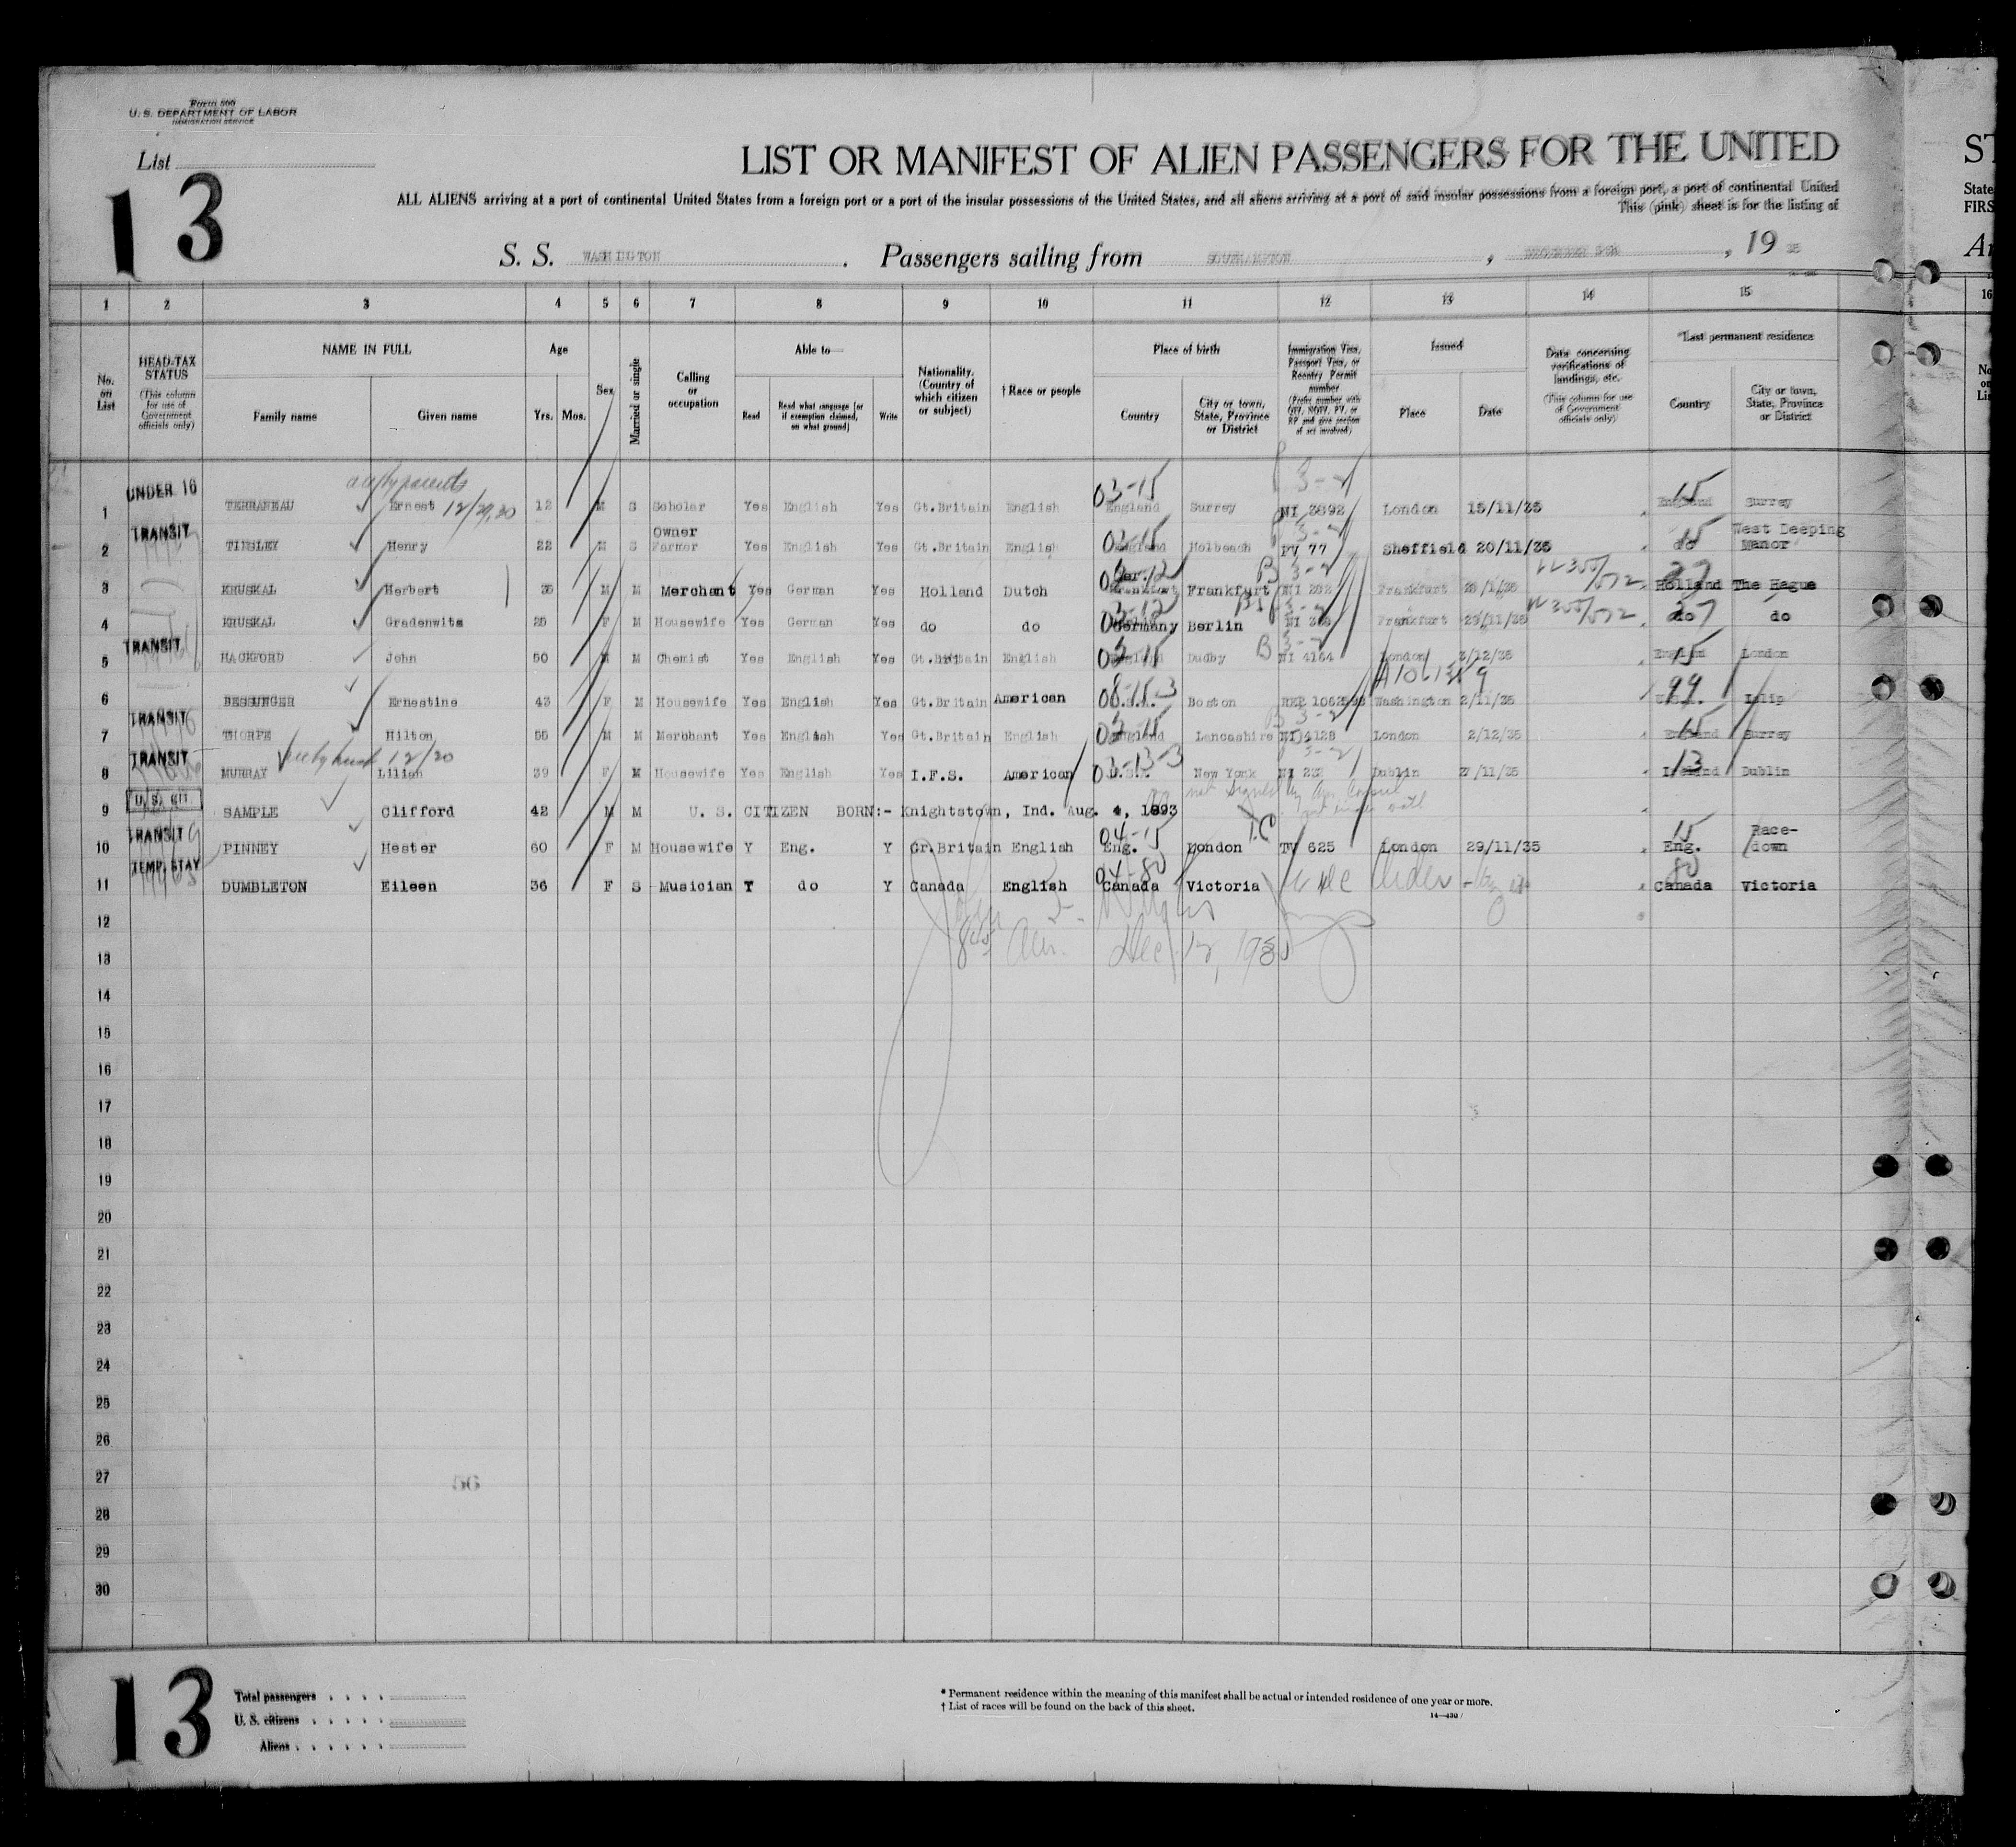 Form 500
U. S. DEPARTMENT OF LABOR
IMMIGRATION SERVICE
List
13
LIST OR MANIFEST OF ALIEN PASSENGERS FOR THE UNITED
ST
ALL ALIENS arriving at a port of continental United States from a foreign port or a port of the insular possessions of the United States, and all aliens arriving at a port of said insular possessions from a foreign port, a port of continental United
State
This (pink) sheet is for the listing of
FIRS
S. S. WASHINGTON . Passengers sailing from SOUTHAMPTON , DECEMBER , 19 35
1 2 3 4 5 6 7 8 9 10 11 12 13 14 15 16
No. on List
HEAD-TAX STATUS (This column for use of Government officials only)
NAME IN FULL Family name Given name
Age Yrs. Mos.
Sex
Married or single
Calling or occupation
Able to— Read Read what language [or if exemption claimed, on what ground] Write
Nationality. (Country of which citizen or subject)
† Race or people
Place of birth Country City or town, State, Province or District
Immigration Visa, Passport Visa, or Reentry Permit number (Prefix number with QIV, NQIV, PV, or RP and give section of act involved)
Issued Place Date
Data concerning verifications of landings, etc. (This column for use of Government officials only)
*Last permanent residence Country City or town, State, Province or District
1 UNDER 16 TERRANEAU Ernest 12 M S Scholar Yes English Yes Gt.Britain English 03-15 England Surrey NI 3892 London 15/11/35 15 England Surrey
2 TRANSIT TINSLEY Henry 22 M S Owner Farmer Yes English Yes Gt.Britain English 03-15 England Holbeach PV 77 Sheffield 20/11/35 15 do West Deeping Manor
3 KRUSKAL Herbert 35 M M Merchant Yes German Yes Holland Dutch Ger. Frankfurt NI 292 Frankfurt 27 Holland The Hague
4 KRUSKAL Gradenwitz 25 F M Housewife Yes German Yes do do 03-12 Germany Berlin NI Frankfurt 29/11/35 27 do do
5 TRANSIT HACKFORD John 50 M M Chemist Yes English Yes Gt.Britain English 03-15 England Dudby NI 4164 London 3/12/35 15 England London
6 BESSUNGER Ernestine 43 F M Housewife Yes English Yes Gt.Britain American 08-15-3 U.S.A. Boston REP Washington 2/11/35 99 U.S.A. Islip
7 TRANSIT THORPE Hilton 55 M M Merchant Yes English Yes Gt.Britain English 03-15 England Lancashire NI 4128 London 2/12/35 15 England Surrey
8 TRANSIT MURRAY 12/20 Lilian 39 F M Housewife Yes English Yes I.F.S. American 03-13-3 U.S.A. New York NI 232 Dublin 27/11/35 13 Ireland Dublin
9 U.S. CIT. SAMPLE Clifford 42 M M U. S. CITIZEN BORN:- Knightstown, Ind. Aug. 4, 1893
10 TRANSIT PINNEY Hester 60 F M Housewife Y Eng. Y Gr.Britain English 04-15 Eng. London TV 625 London 29/11/35 15 Eng. Race-down
11 TEMP. STAY DUMBLETON Eileen 36 F S Musician Y do Y Canada English 04-80 Canada Victoria 80 Canada Victoria
12
13 Dec 12, 1935
14
15
16
17
18
19
20
21
22
23
24
25
26
27
28
29
30
13
Total passengers
U. S. citizens
Aliens
* Permanent residence within the meaning of this manifest shall be actual or intended residence of one year or more.
† List of races will be found on the back of this sheet.
14—430